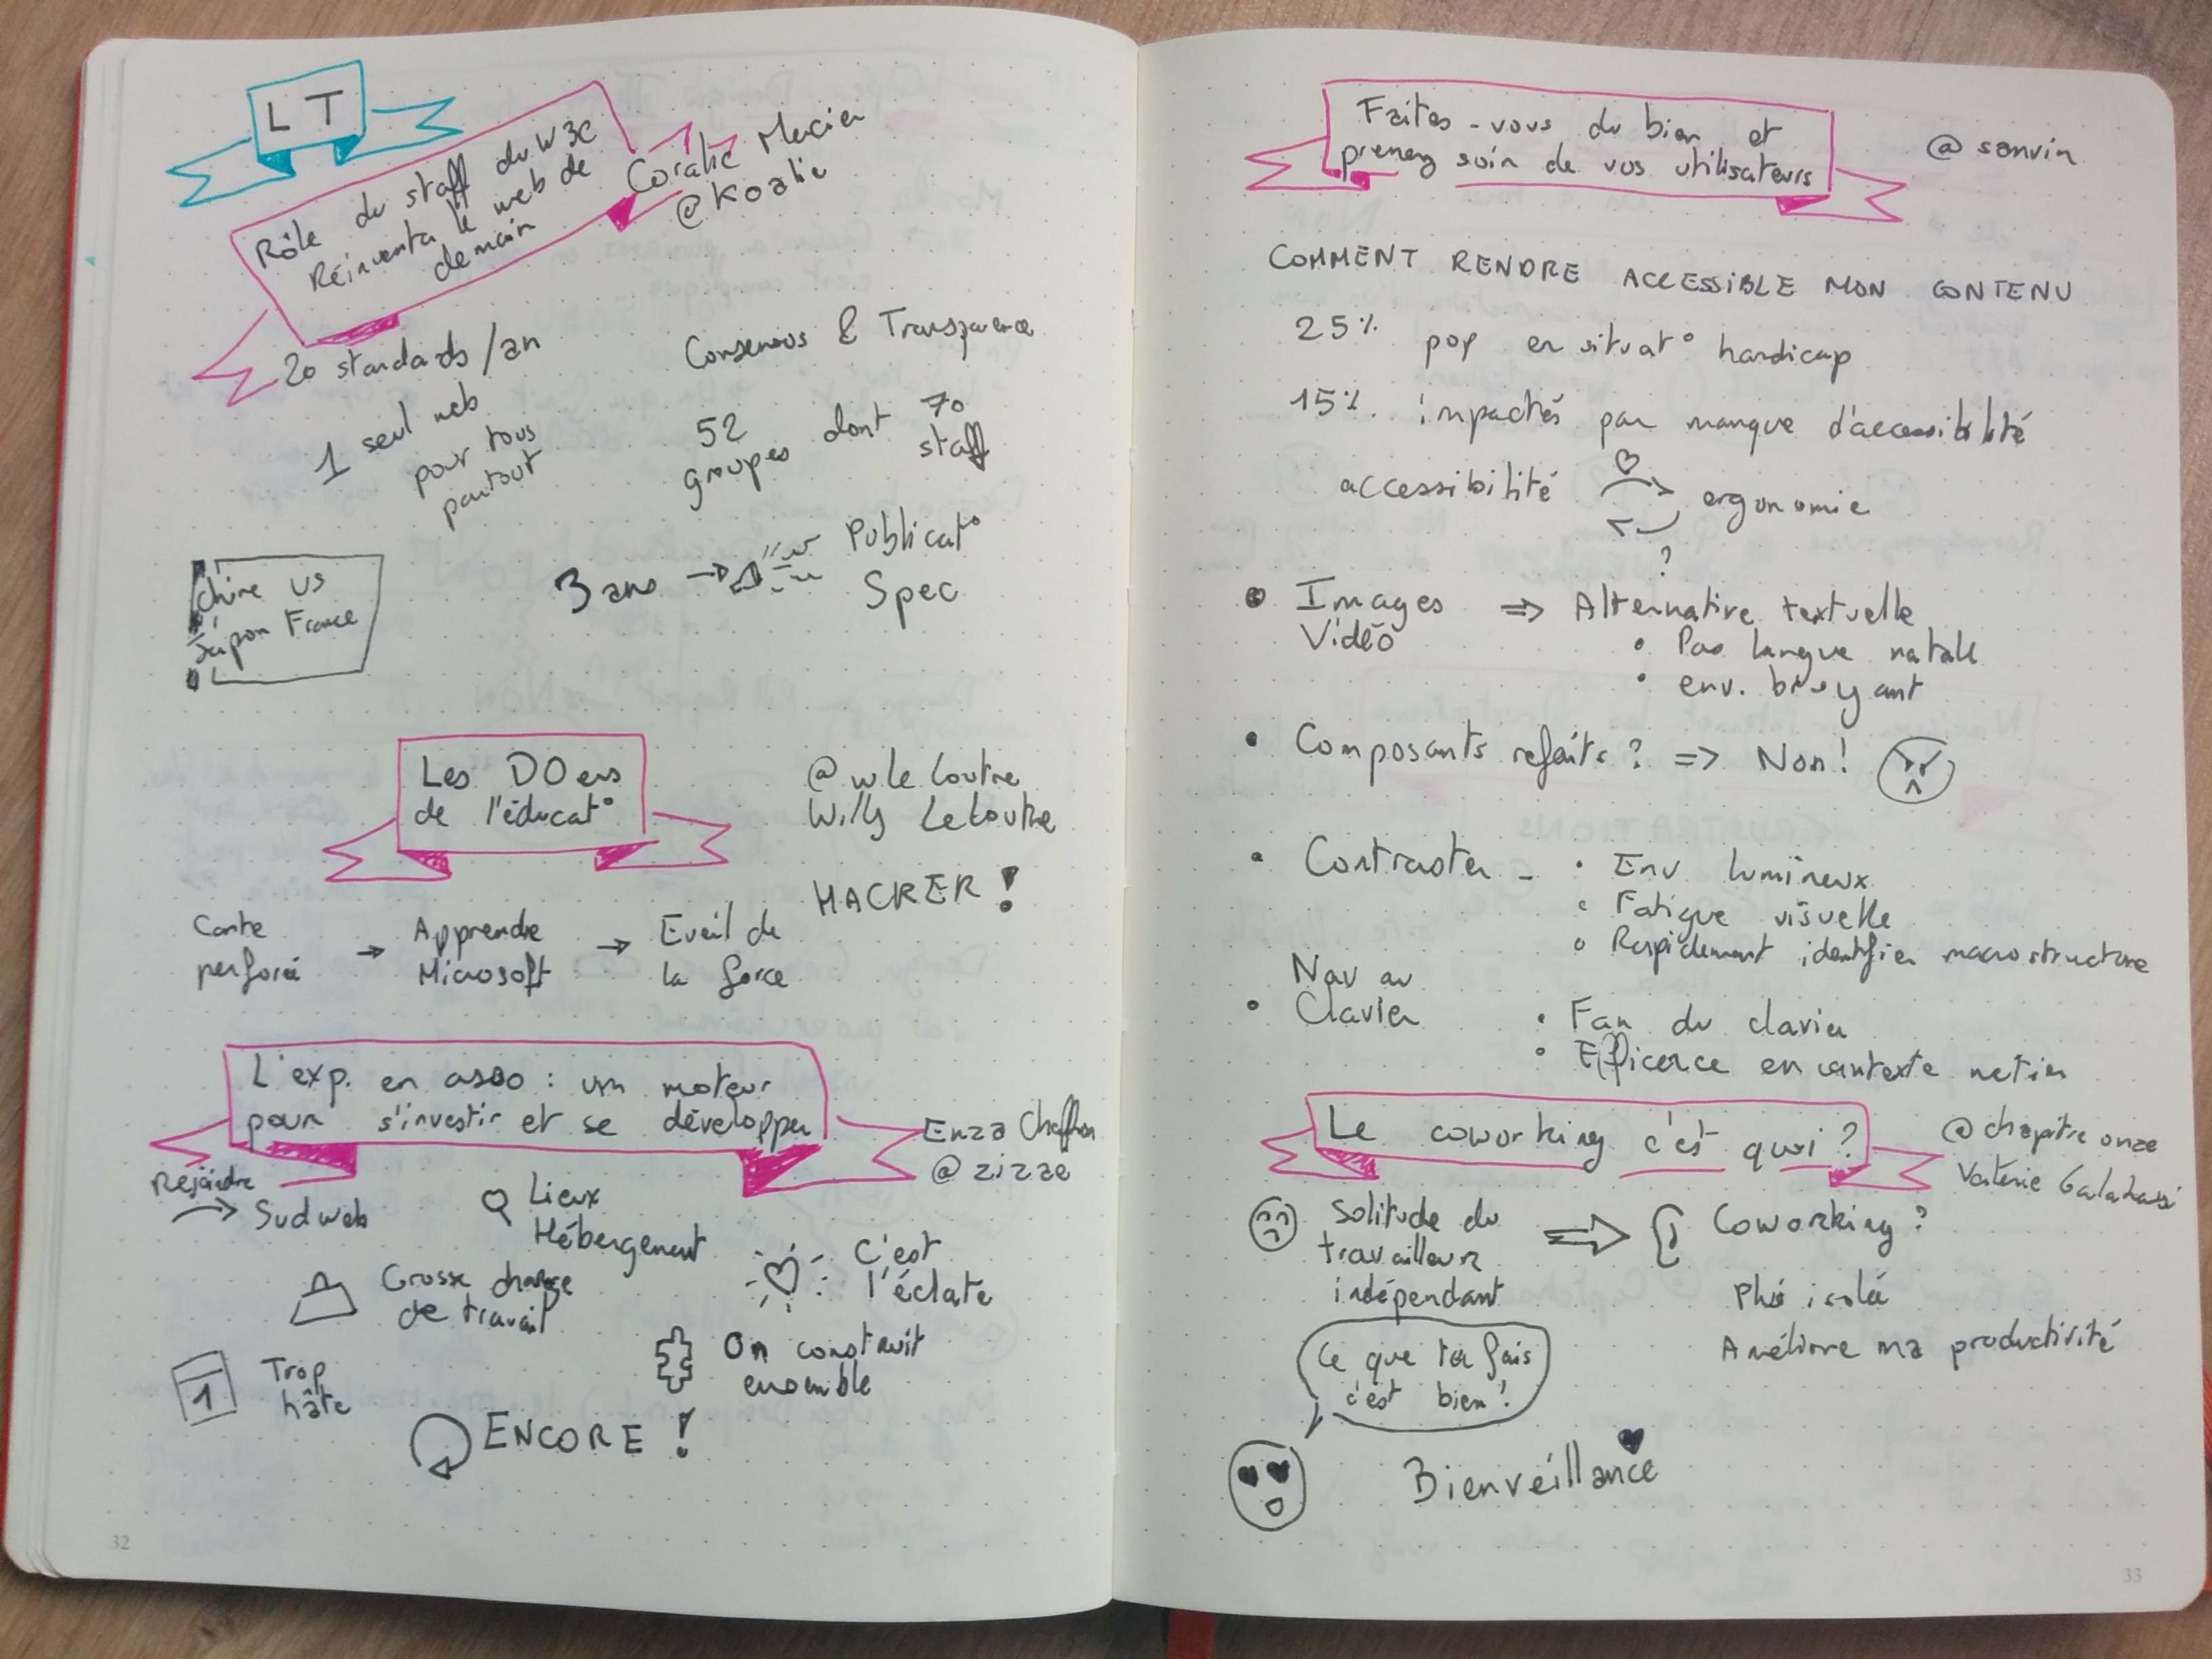 LT
Rôle du staff du W3C
Réinventer le web de
demain
Coralie Mercier
@Koalie
20 standards/an
1 seul web
pour tous
partout
Consensus & Transparence
52
groupes dont 70
staff
3 ans → Publicat°
Spec
Chine US
Japon France
Les DOers
de l'éducat°
@wleloutre
Willy Leloutre
HACKER !
Carte
perforée
→ Apprendre
Microsoft
→ Eveil de
la force
L'exp. en asso : un moteur
pour s'investir et se développer
Enza Chaffron
@zizze
Rejoindre
→ Sudweb
Lieux
Hébergement
Grosse charge
de travail
C'est
l'éclate
1
Trop
hâte
On construit
ensemble
ENCORE !
32
Faites-vous du bien et
prenez soin de vos utilisateurs
@sanvin
COMMENT RENDRE ACCESSIBLE MON CONTENU
25% pop en situat° handicap
15% impactés par manque d'accessibilité
accessibilité ergonomie
?
• Images
Vidéo
⇒ Alternative textuelle
• Pas langue natale
• env. bruyant
• Composants refaits ? ⇒ Non !
• Contraster - • Env lumineux
• Fatigue visuelle
• Rapidement identifier macrostructure
• Nav au
Clavier
• Fan du clavier
• Efficace en contexte métier
Le coworking c'est quoi ?
@chapitre onze
Valérie
Solitude du
travailleur
indépendant
⇒ Coworking ?
Plus isolé
Améliore ma productivité
Ce que tu fais
c'est bien !
Bienveillance
33